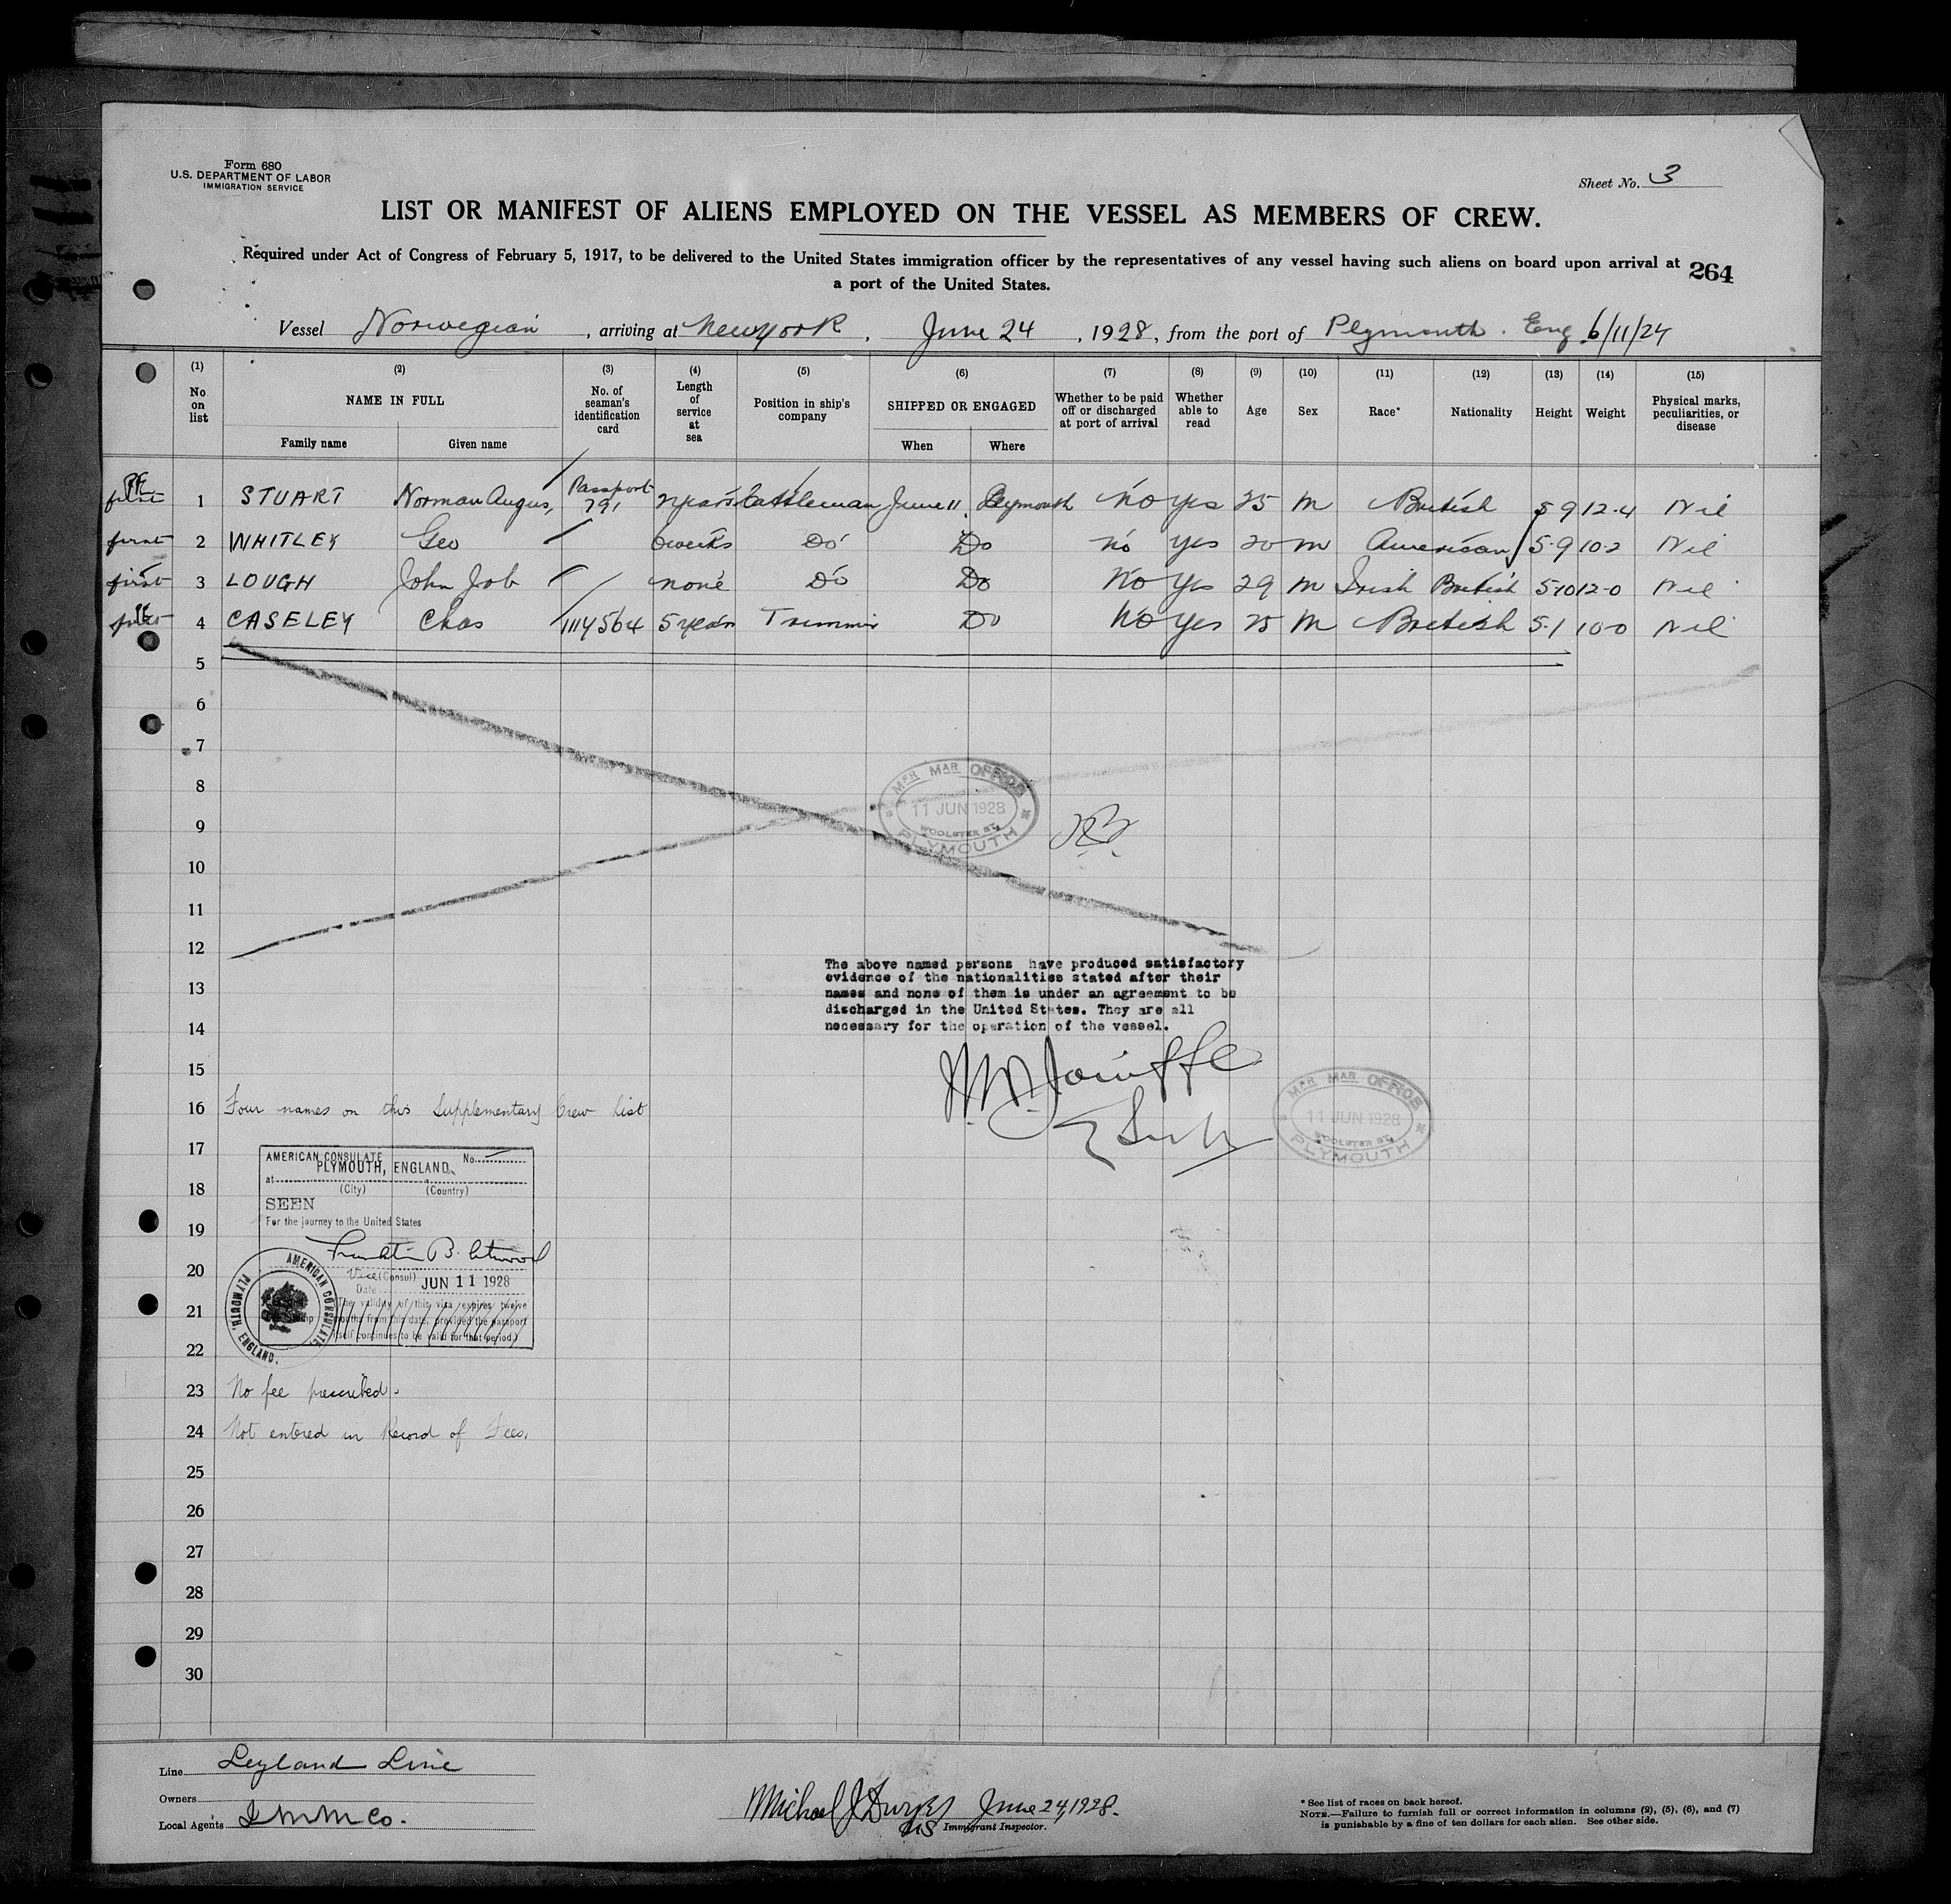 Form 680
U.S. DEPARTMENT OF LABOR
IMMIGRATION SERVICE
Sheet No. 3
LIST OR MANIFEST OF ALIENS EMPLOYED ON THE VESSEL AS MEMBERS OF CREW.
Required under Act of Congress of February 5, 1917, to be delivered to the United States immigration officer by the representatives of any vessel having such aliens on board upon arrival at
a port of the United States.
264
Vessel Norwegian, arriving at New York, June 24, 1928, from the port of Plymouth. Eng 6/11/24
(1) (2) (3) (4) (5) (6) (7) (8) (9) (10) (11) (12) (13) (14) (15)
No on list NAME IN FULL No. of seaman's identification card Length of service at sea Position in ship's company SHIPPED OR ENGAGED Whether to be paid off or discharged at port of arrival Whether able to read Age Sex Race* Nationality Height Weight Physical marks, peculiarities, or disease
Family name Given name When Where
first 1 STUART Norman Angus, Passport 791 2 years Cattleman June 11. Plymouth No yes 25 M British 5 9 12-4 Nil
first 2 WHITLEY Geo 6 weeks Do Do No yes 20 M American 5-9 10-2 Nil
first 3 LOUGH John Job none Do Do No yes 29 M Irish British 5-10 12-0 Nil
4 CASELEY Chas 1114564 5 years Trimmer Do No yes 25 M British 5-1 10-0 Nil
5
6
7
8
MER MAR OFFICE
11 JUN 1928
WOOLSTER ST.
PLYMOUTH
9
10
11
12
The above named persons have produced satisfactory
evidence of the nationalities stated after their
13
names and none of them is under an agreement to be
discharged in the United States. They are all
14
necessary for the operation of the vessel.
15
16 Four names on this Supplementary Crew List
MER MAR OFFICE
11 JUN 1928
WOOLSTER ST.
PLYMOUTH
17
AMERICAN CONSULATE No.
PLYMOUTH, ENGLAND
at
18
(City) (Country)
SEEN
For the journey to the United States
19
Franklin B. Atwood
20
Vice (Consul)
Date JUN 11 1928
21
(The validity of this visa expires twelve
months from this date, provided the passport
itself continues to be valid for that period.)
AMERICAN CONSULATE,
PLYMOUTH, ENGLAND.
22
23 No fee prescribed.
24 Not entered in Record of Fees.
25
26
27
28
29
30
Line Leyland Line
Owners
Local Agents I M M Co.
Michael J June 24, 1928.
Immigrant Inspector.
* See list of races on back hereof.
NOTE.—Failure to furnish full or correct information in columns (2), (5), (6), and (7)
is punishable by a fine of ten dollars for each alien. See other side.